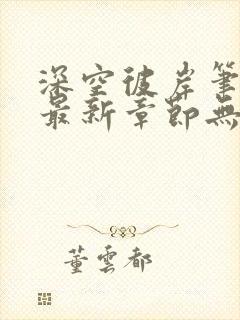 深空彼岸筆
最新章節無
董雲都